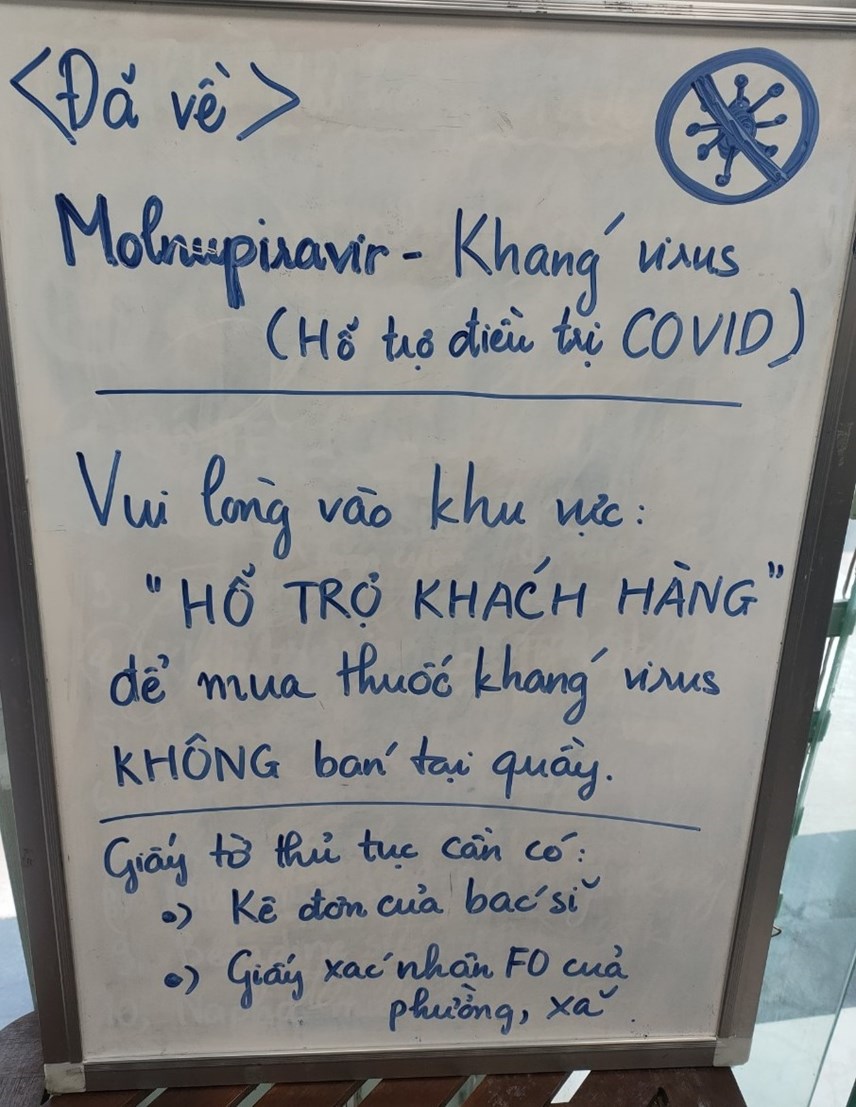 <Đã về>
Molnupiravir - Kháng virus
(Hỗ trợ điều trị COVID)
Vui lòng vào khu vực:
"HỖ TRỢ KHÁCH HÀNG"
để mua thuốc kháng virus
KHÔNG bán tại quầy.
Giấy tờ thủ tục cần có:
•) Kê đơn của bác sĩ
•) Giấy xác nhận F0 của
phường, xã.